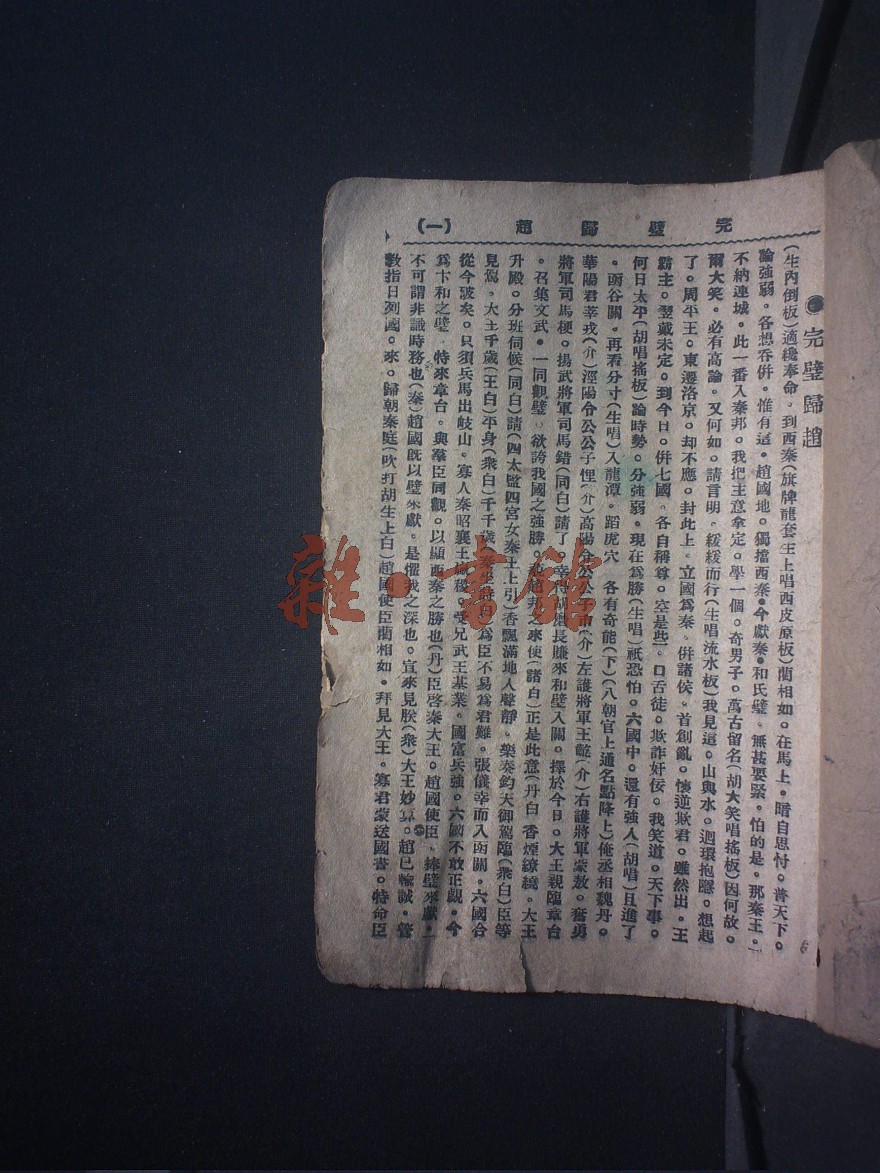 完璧歸趙 (一)
●完璧歸趙
(生內倒板)適纔奉命。到西秦(旗牌龍套生上唱西皮原板)藺相如。在馬上。暗自思忖。普天下。
論強弱。各想吞併。惟有這。趙國地。獨擋西秦。今獻秦。和氏璧。無甚要緊。怕的是。那秦王。
不納連城。此一番入秦邦。我把主意拿定。學一個。奇男子。萬古留名(胡大笑唱搖板)因何故。
爾大笑。必有高論。又何如。請言明。緩緩而行(生唱流水板)我見這。山與水。迴環抱隱。想起
了。周平王。東遷洛京。却不應。封此上。立國爲秦。併諸侯。首創亂。懷逆欺君。雖然出。王
霸主。翌戴未定。到今日。併七國。各自稱尊。空是些。口舌徒。欺詐奸佞。我笑道。天下事。
何日太平(胡唱搖板)論時勢。分強弱。現在爲勝(生唱)祇恐怕。六國中。還有強人(胡唱)且進了
。函谷關。再看分寸(生唱)入龍潭。蹈虎穴 各有奇能(下)(八朝官上通名點降上)俺丞相魏丹。
華陽君芈戎(介)涇陽令公公子悝(介)高陽令公公子市(介)左護將軍王齕(介)右護將軍蒙敖。奮勇
將軍司馬梗。揚武將軍司馬錯(同白)請了。幸得胡 長賺來和璧入關。擇於今日。大王親臨章台
。召集文武。一同觀璧。欲誇我國之強勝。 趙邦之來使(諸白)正是此意(丹白 香煙繚繞。大王
升殿。分班伺候(同白)請(四太監四宮女秦王上引)香飄滿地人聲靜。樂奏鈞天御駕臨(衆白)臣等
見駕。大王千歲(王白)平身(衆白)千千歲 秦坐詩白)爲臣不易爲君難。張儀幸而入函關。六國合
從今破矣。只須兵馬出岐山。寡人秦昭襄王嬴稷。受兄武王基業。國富兵強。六國不敢正覷。今
爲卞和之璧 特來章台。與羣臣同觀。以顯西秦之勝也(丹)臣啓秦大王。趙國使臣。捧璧來獻。
不可謂非識時務也(秦)趙國既以璧來獻。是懼我之深也。宣來見朕(衆)大王妙算。趙已輸誠。管
教指日列國。來。歸朝秦庭(吹打胡生上白)趙國使臣藺相如。拜見大王。寡君蒙送國書。特命臣
雜·書館